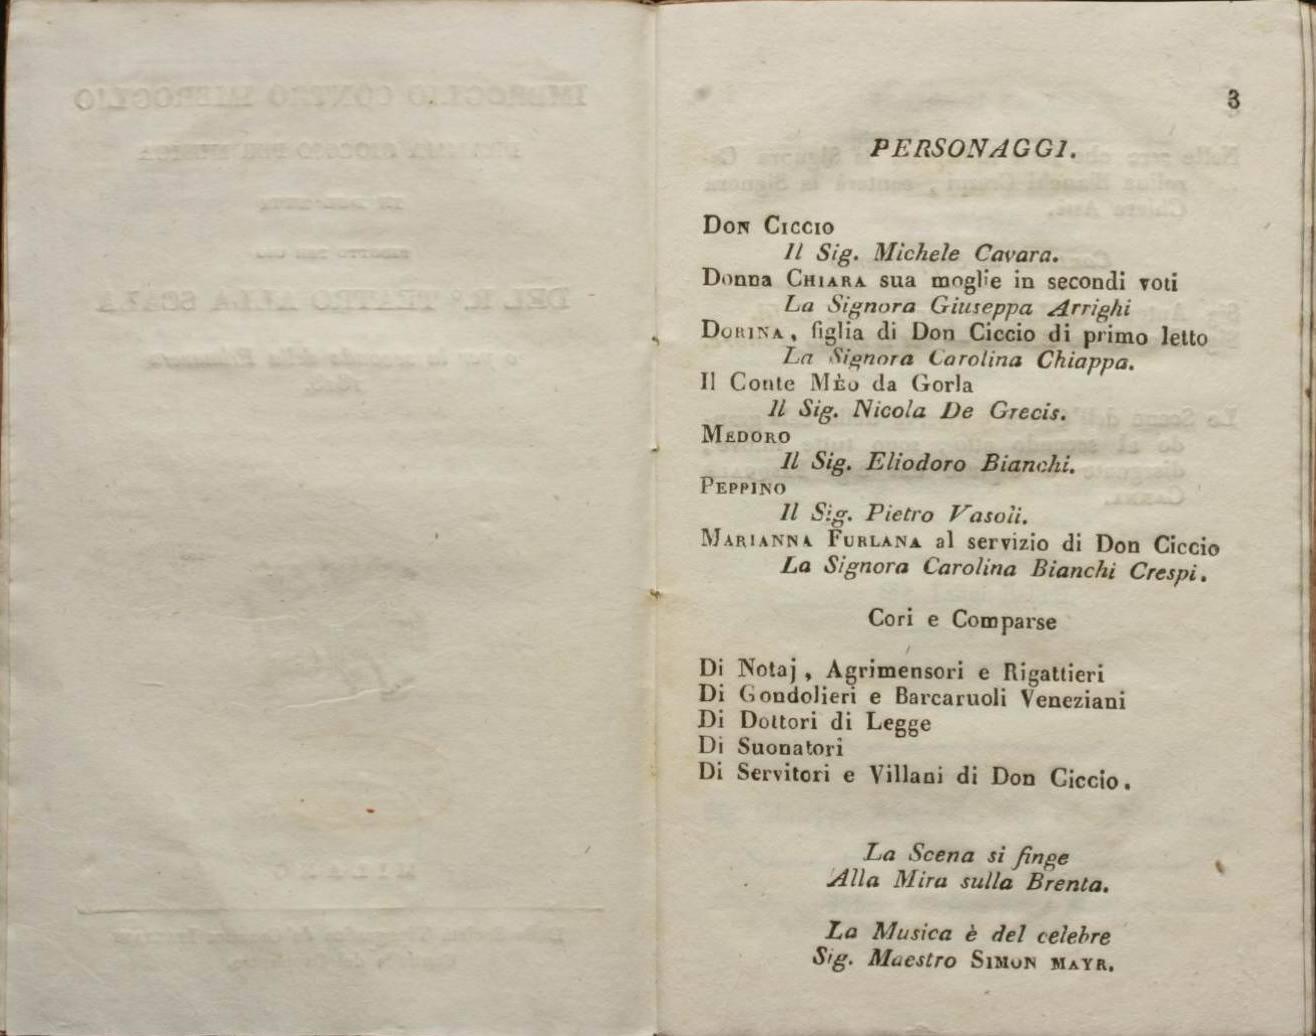 3
PERSONAGGI.
Don Ciccio
Il Sig. Michele Cavara.
Donna Chiara sua moglie in secondi voti
La Signora Giuseppa Arrighi
Dorina, figlia di Don Ciccio di primo letto
La Signora Carolina Chiappa.
Il Conte Mèo da Gorla
Il Sig. Nicola De Grecis.
Medoro
Il Sig. Eliodoro Bianchi.
Peppino
Il Sig. Pietro Vasoli.
Marianna Furlana al servizio di Don Ciccio
La Signora Carolina Bianchi Crespi.
Cori e Comparse
Di Notaj, Agrimensori e Rigattieri
Di Gondolieri e Barcaruoli Veneziani
Di Dottori di Legge
Di Suonatori
Di Servitori e Villani di Don Ciccio.
La Scena si finge
Alla Mira sulla Brenta.
La Musica è del celebre
Sig. Maestro Simon Mayr.